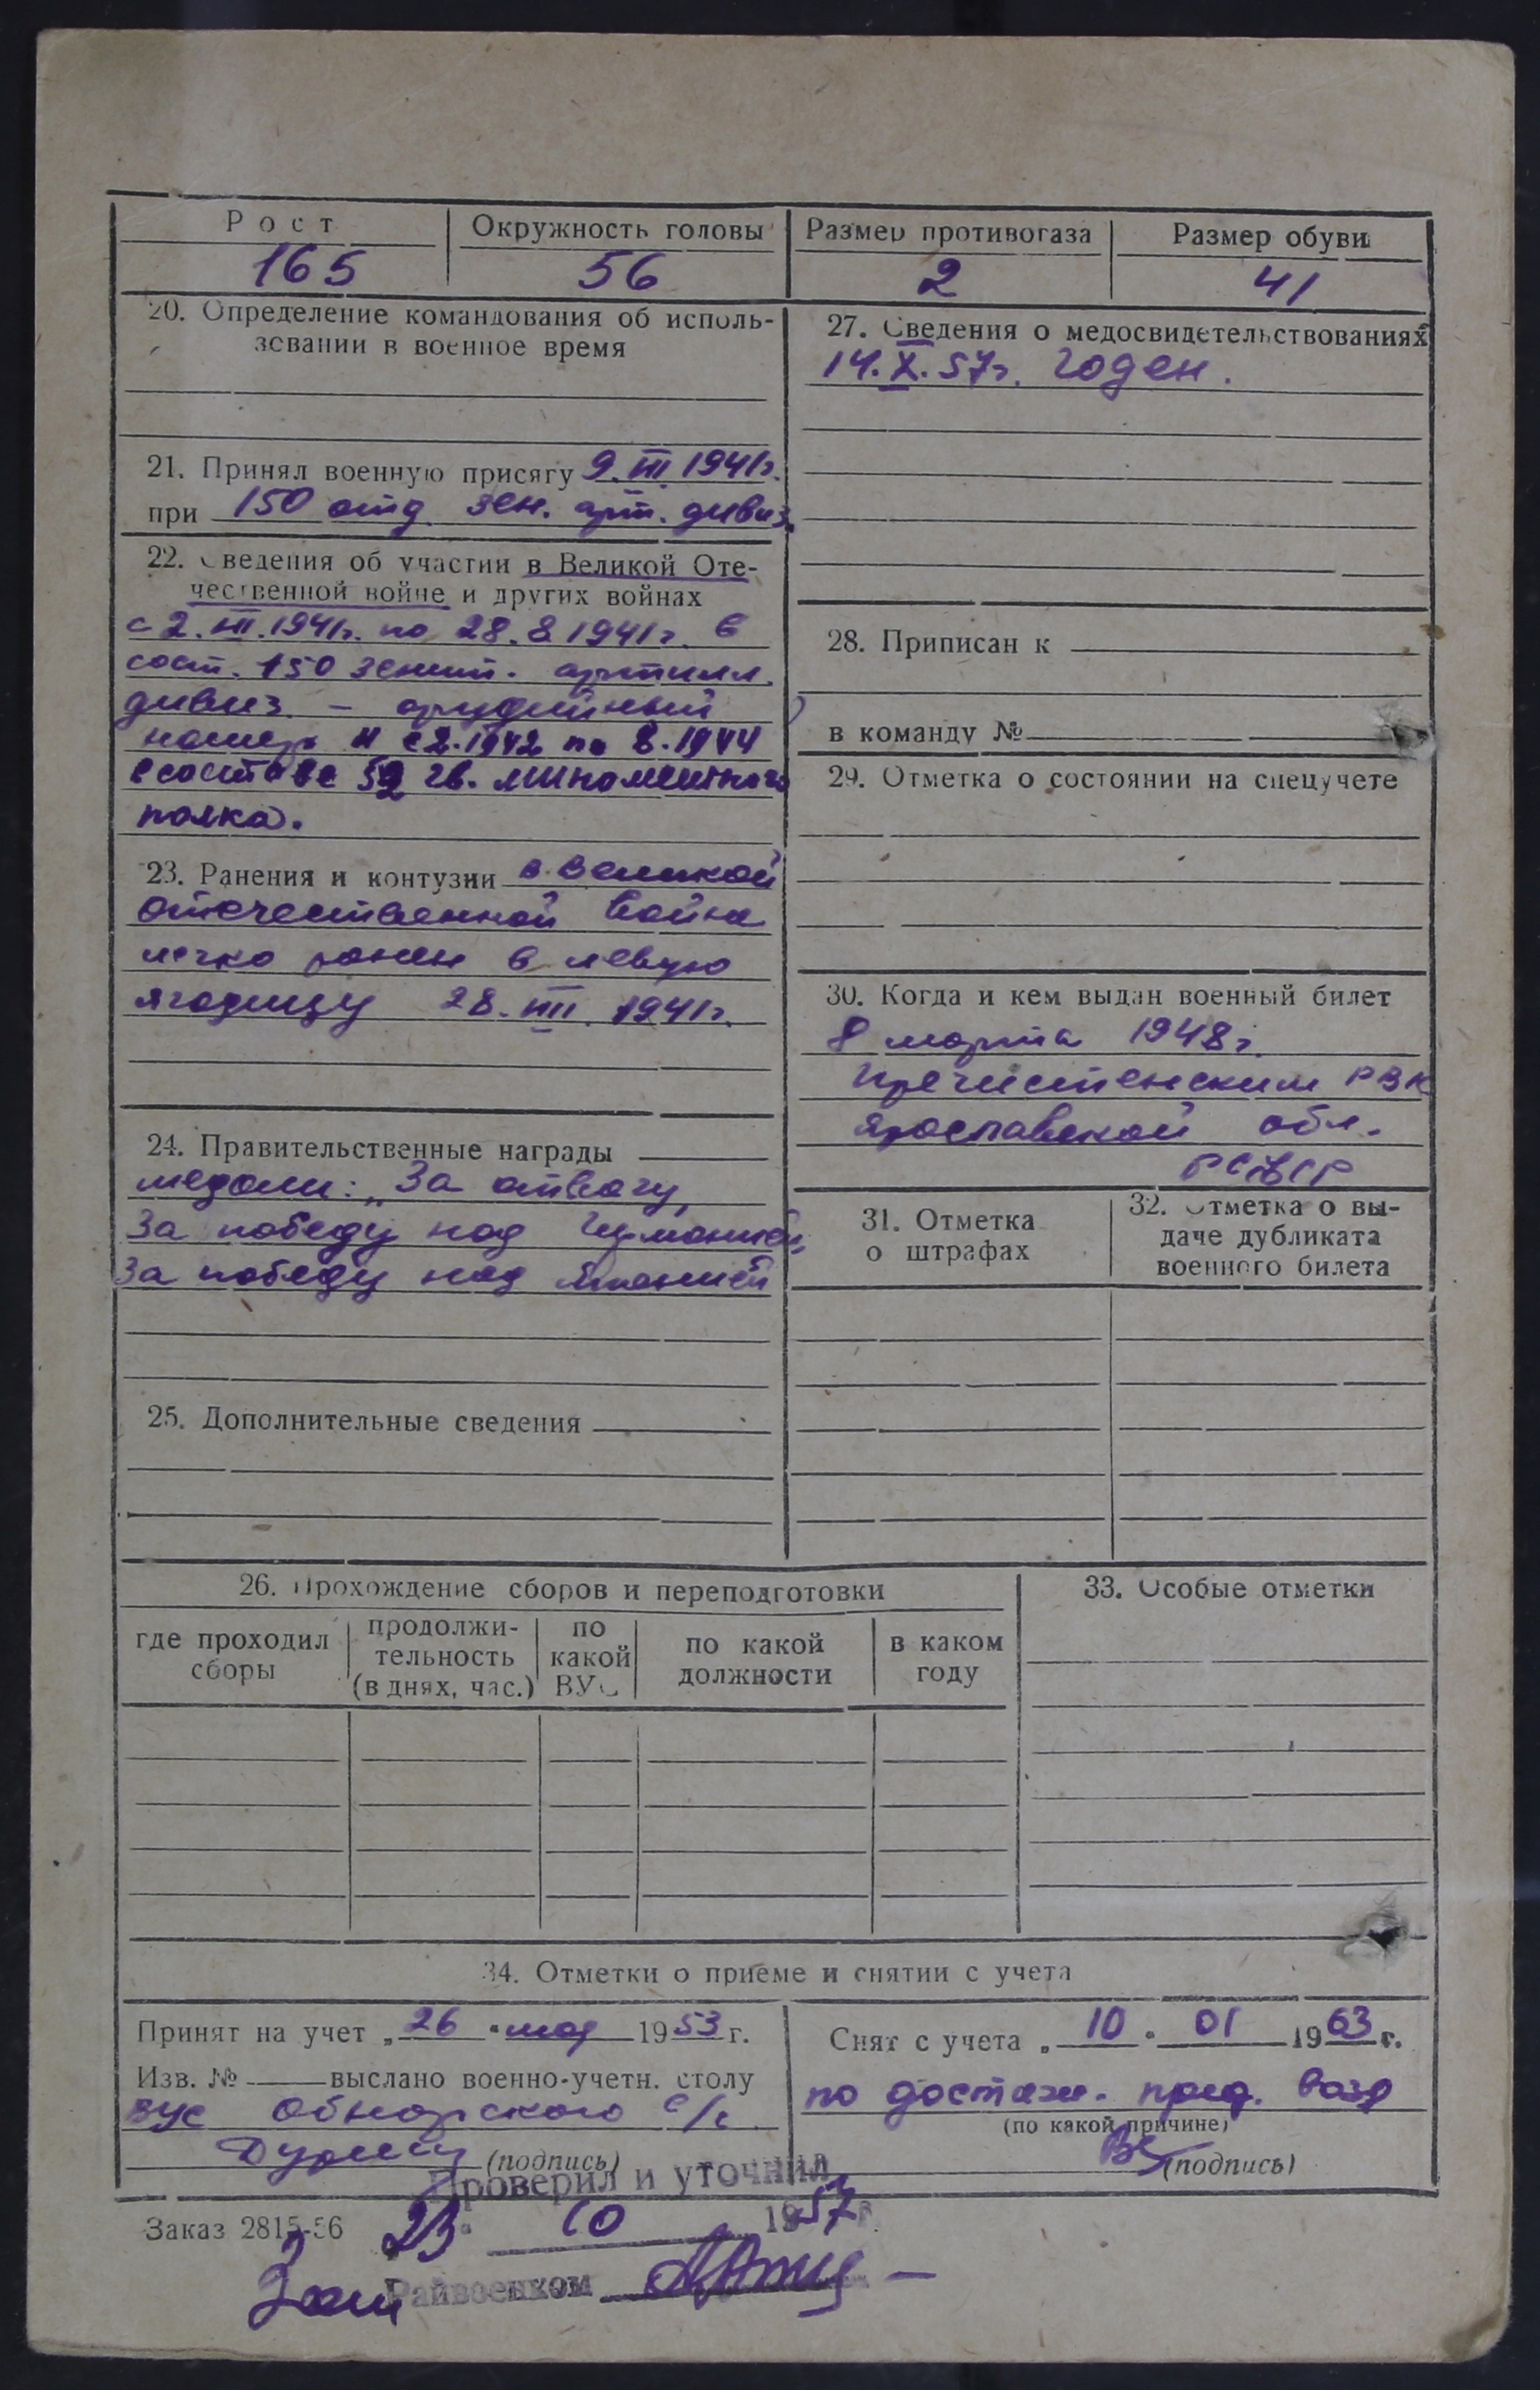 Рост
165
Окружность головы
56
Размер противогаза
2
Размер обуви
41
20. Определение командования об исполь-
зовании в военное время
21. Принял военную присягу 9. III 1941г.
при 150 отд. зен. арт. дивиз.
22. Сведения об участии в Великой Оте-
чественной войне и других войнах
с 2. VII. 1941г. по 28. 8 1941г. в
сост. 150 зенит. артилл.
дивиз. – орудийный
номер и с 2.1942 по 8.1944
в составе 52 гв. минометного
полка.
23. Ранения и контузии в Великой
отечественной войне
легко ранен в левую
ягодицу 28. VIII. 1941г.
24. Правительственные награды
медали: „За отвагу,
За победу над Германией,
За победу над Японией
25. Дополнительные сведения
27. Сведения о медосвидетельствованиях
14. X. 57г. Годен.
28. Приписан к
в команду №
29. Отметка о состоянии на спецучете
30. Когда и кем выдан военный билет
8 марта 1948г.
Пречистенским РВК
Ярославской обл.
РСФСР
31. Отметка
о штрафах
32. Отметка о вы-
даче дубликата
военного билета
26. Прохождение сборов и переподготовки
где проходил
сборы
продолжи-
тельность
(в днях, час.)
по
какой
ВУС
по какой
должности
в каком
году
33. Особые отметки
34. Отметки о приеме и снятии с учета
Принят на учет „26 " мая 1953 г.
Изв. № выслано военно-учетн. столу
ВУС Обнорского с/с
(подпись)
Снят с учета „ 10 " 01 1963 г.
по достиж. пред. возр
(по какой причине)
(подпись)
Проверил и уточнил
23 " 10 1957 г.
Заказ 2815-56
Зам Райвоенком